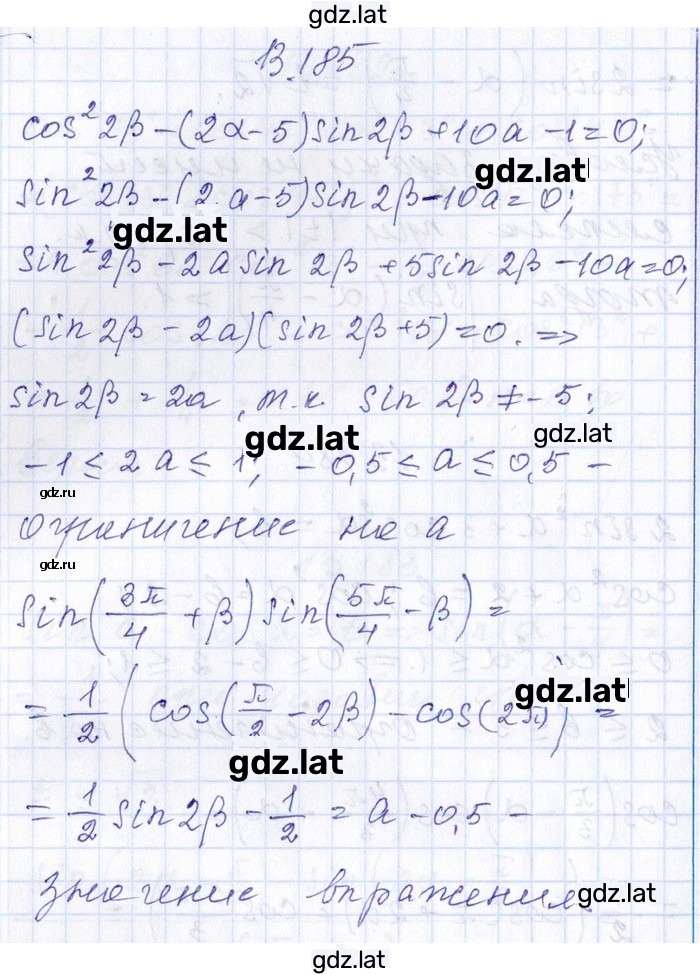 gdz.lat
В.185
cos² 2β − (2α − 5) sin 2β + 10a − 1 = 0;
gdz.lat
sin² 2β − (2a − 5) sin 2β − 10a = 0;
gdz.lat
sin² 2β − 2a sin 2β + 5 sin 2β − 10a = 0;
(sin 2β − 2a)(sin 2β + 5) = 0. =>
sin 2β = 2a, т.к. sin 2β ≠ −5;
gdz.lat gdz.lat
−1 ≤ 2a ≤ 1; −0,5 ≤ a ≤ 0,5 −
gdz.ru
ограничение на a
gdz.ru
sin(3π/4 + β) sin(5π/4 − β) =
= 1/2 (cos(π/2 − 2β) − cos(2π)) =
gdz.lat
gdz.lat
= 1/2 sin 2β − 1/2 = a − 0,5 −
значение выражения.
gdz.lat
gdz.lat